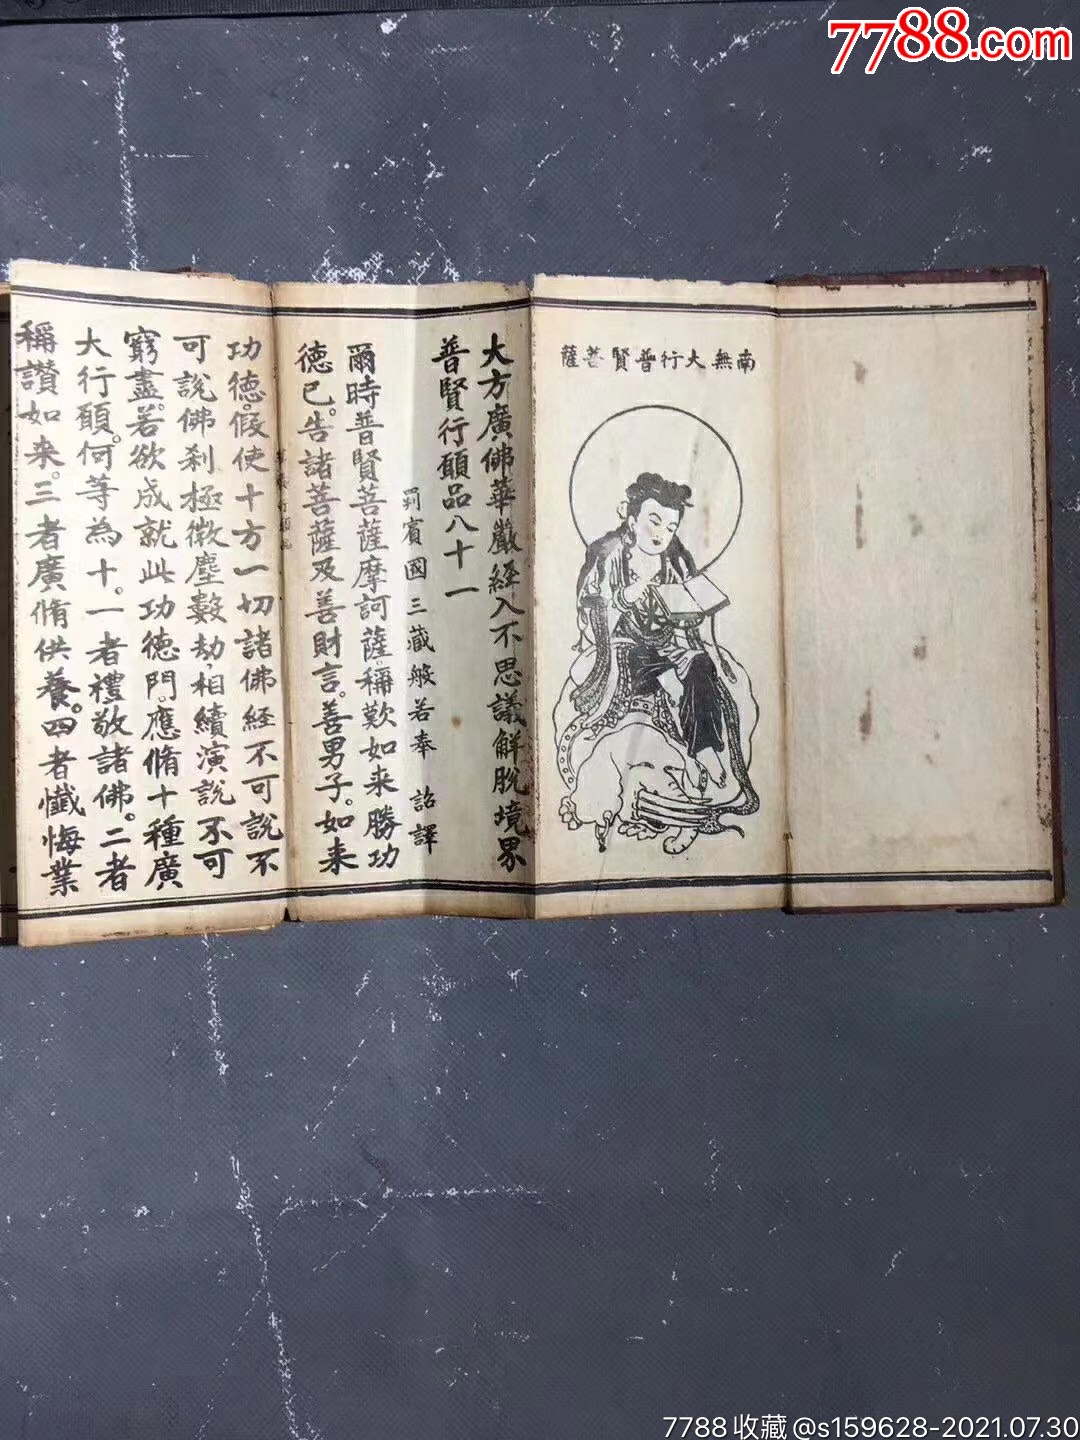 7788.com
南無大行普賢菩薩
大方廣佛華嚴經入不思議解脫境界
普賢行願品八十一
罽賓國三藏般若奉 詔譯
爾時普賢菩薩摩訶薩。稱歎如来勝功
德已。告諸菩薩及善財言。善男子。如来
功德。假使十方一切諸佛經不可說不
可說佛刹極微塵數劫。相續演說不可
窮盡。若欲成就此功德門。應脩十種廣
大行願。何等為十。一者禮敬諸佛。二者
稱讚如来。三者廣脩供養。四者懺悔業
7788收藏@s159628-2021.07.30